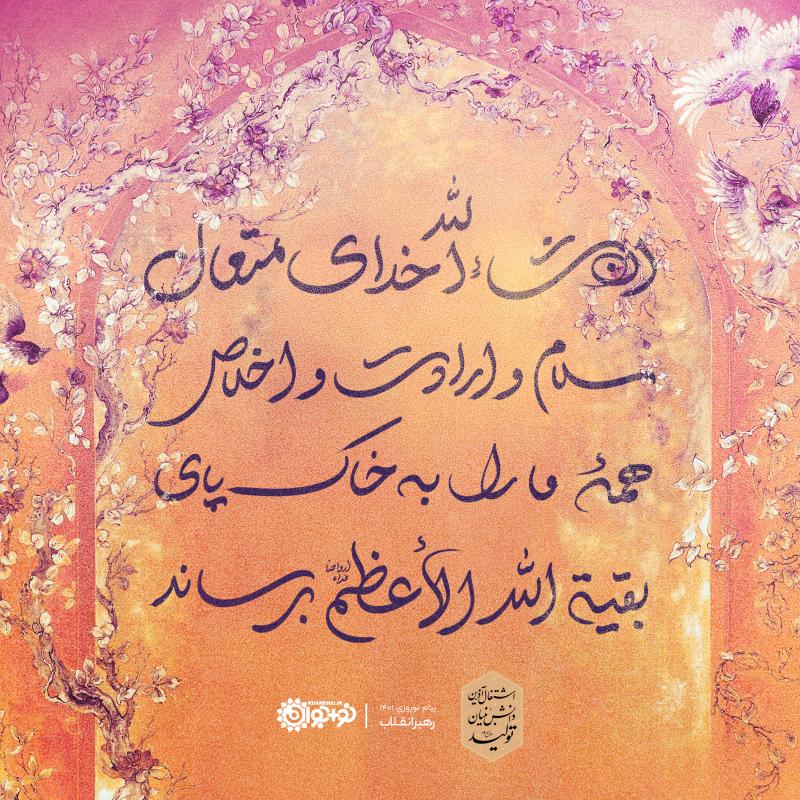 ان‌شاءالله خدای متعال
سلام و ارادت و اخلاص
همهٔ ما را به خاک پای
بقیة الله الأعظم ارواحنا فداه برساند
پیام نوروزی ۱۴۰۱
رهبر انقلاب
KHAMENEI.IR
نوجوان
تولید
دانش‌بنیان
اشتغال‌آفرین